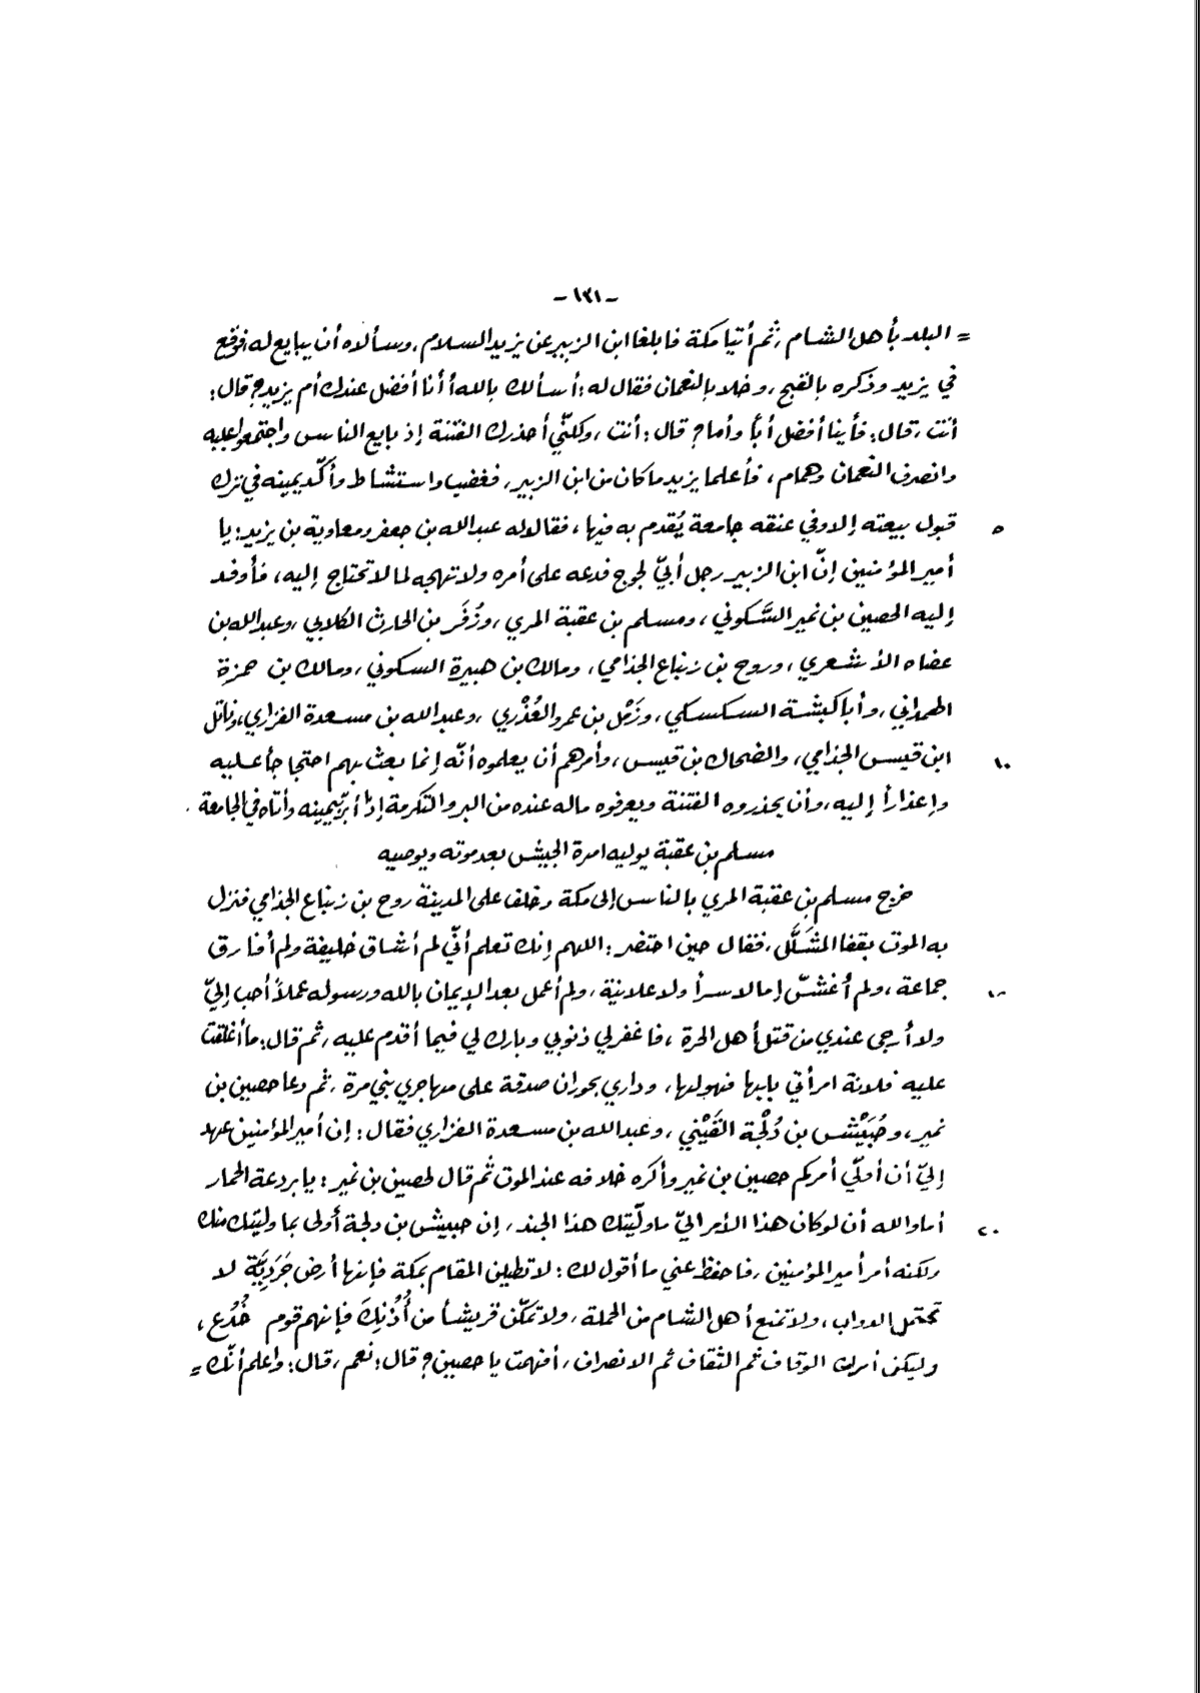 - ١٣١ -
= البلد بأهل الشام ، ثم أتيا مكة فابلغا ابن الزبير عن يزيد السلام ، وسألاه أن يبايع له ، فوقع
في يزيد وذكره بالقبح ، وخلا بالنعمان فقال له : أسألك بالله أأنا أفضل عندك أم يزيد ؟ قال :
أنت ، قال : فأينا أفضل أباً وأماً ؟ قال : أنت ، ولكنّي أحذرك الفتنة إذ بايع الناس واجتمعوا عليه
وانصرف النعمان وهمام ، فأعلما يزيد ماكان من ابن الزبير ، فغضب واستشاط وأكّد يمينه في ترك
قبول بيعته إلا وفي عنقه جامعة يُقدم به فيها ، فقال له عبد الله بن جعفر ومعاوية بن يزيد : يا
٥
أمير المؤمنين إنّ ابن الزبير رجل أبيّ لجوج فدعه على أمره ولا تهجه لما لا تحتاج إليه ، فأوفد
إليه الحصين بن نمير السَّكوني ، ومسلم بن عقبة المري ، وزُفَر بن الحارث الكلابي ، وعبد الله بن
عضاه الأشعري ، وروح بن زنباع الجذامي ، ومالك بن هبيرة السكوني ، ومالك بن حمزة
الهمداني ، وأبا كبشة السكسكي ، وزَمْل بن عمرو العُذْري ، وعبد الله بن مسعدة الفزاري ، وناتل
ابن قيس الجذامي ، والضحاك بن قيس ، وأمرهم أن يعلموه أنّه إنما بعث بهم احتجاجاً عليه
١٠
وإعذاراً إليه ، وأن يحذروه الفتنة ويعرفوه ماله عنده من البر والتكرمة إذا أبرّ يمينه وأتاه في الجامعة .
مسلم بن عقبة يوليه امرة الجيش بعد موته ويوصيه
خرج مسلم بن عقبة المري بالناس إلى مكة وخلف على المدينة روح بن زنباع الجذامي فنزل
به الموت بقفا المشَلَّل ، فقال حين احتضر : اللهم إنك تعلم أنّي لم أشاق خليفة ولم أفارق
جماعة ، ولم أُغشّ إماما لا سراً ولا علانية ، ولم أعمل بعد الإيمان بالله ورسوله عملاً أحب إليّ
ولا أرجى عندي من قتل أهل الحرة ، فاغفر لي ذنوبي وبارك لي فيما أقدم عليه ، ثم قال : ما أغلقت
عليه فلانة امرأتي بابها فهولها ، وداري بحوران صدقة على مهاجري بني مرة ، ثم دعا حصين بن
نمير ، وحُبَيْش بن دُلْجة القَيْني ، وعبد الله بن مسعدة الفزاري فقال : إن أمير المؤمنين عهد
إليّ أن أولّي أمركم حصين بن نمير وأكره خلافه عند الموت ثم قال لحصين بن نمير : يا بردعة الحمار
أما والله أن لو كان هذا الأمر اليّ ما ولّيتك هذا الجند ، إن حبيش بن دلجة أولى بما وليتك منك
٢٠
ولكنه أمر أمير المؤمنين ، فاحفظ عني ما أقول لك : لا تطيلن المقام بمكة فإنها أرض جَرَدِيَّة لا
تحتمل الدواب ، ولا تمنع أهل الشام من الحملة ، ولا تمكّن قريشاً من أُذُنِكَ فإنهم قوم خُدُع ،
وليكن أمرك الوقاف ثم الثقاف ثم الانصراف ، أفهمت يا حصين ؟ قال : نعم ، قال : واعلم أنّك =